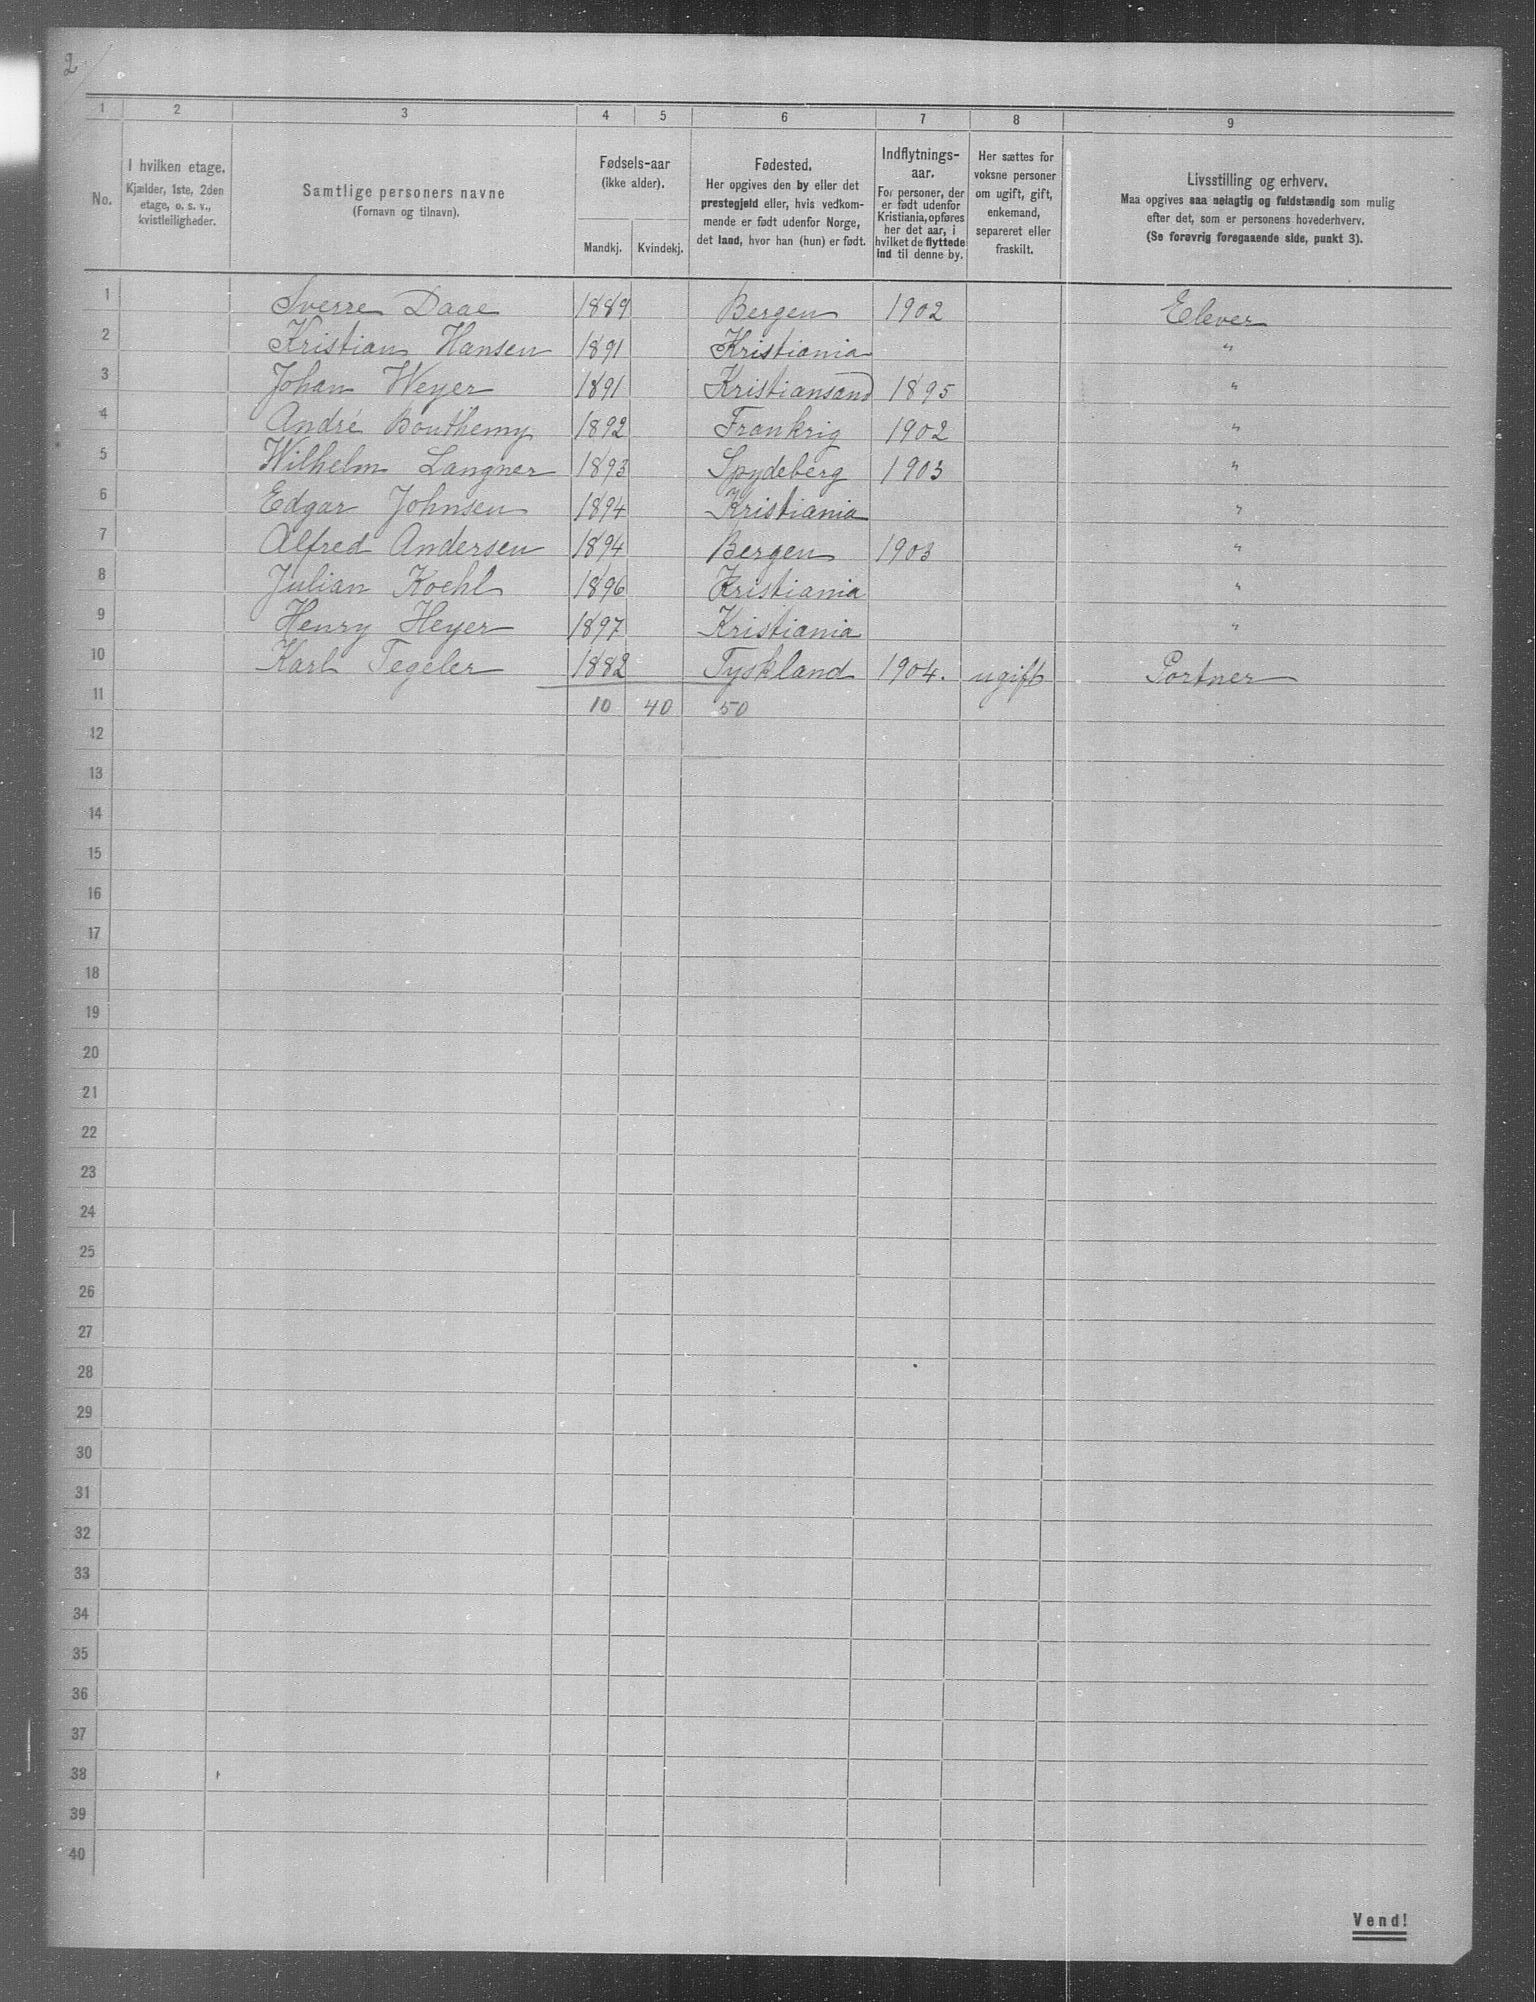 2
1 2 3 4 5 6 7 8 9
No.
I hvilken etage.
Kjælder, 1ste, 2den
etage, o. s. v.,
kvistleiligheder.
Samtlige personers navne
(Fornavn og tilnavn).
Fødsels-aar
(ikke alder).
Mandkj. Kvindekj.
Fødested.
Her opgives den by eller det
prestegjeld eller, hvis vedkom-
mende er født udenfor Norge,
det land, hvor han (hun) er født.
Indflytnings-
aar.
For personer, der
er født udenfor
Kristiania, opføres
her det aar, i
hvilket de flyttede
ind til denne by.
Her sættes for
voksne personer
om ugift, gift,
enkemand,
separeret eller
fraskilt.
Livsstilling og erhverv.
Maa opgives saa nøiagtig og fuldstændig som mulig
efter det, som er personens hovederhverv.
(Se forøvrig foregaaende side, punkt 3).
1 Sverre Daae 1889 Bergen 1902 Elever
2 Kristian Hansen 1891 Kristiania "
3 Johan Weyer 1891 Kristiansand 1895 "
4 André Bouthemy 1892 Frankrig 1902 "
5 Wilhelm Langner 1893 Spydeberg 1903 "
6 Edgar Johnsen 1894 Kristiania "
7 Alfred Andersen 1894 Bergen 1903 "
8 Julian Koehl 1896 Kristiania "
9 Henry Heyer 1897 Kristiania "
10 Karl Tegeler 1882 Tyskland 1904. ugift Portner
11 10 40 50
12
13
14
15
16
17
18
19
20
21
22
23
24
25
26
27
28
29
30
31
32
33
34
35
36
37
38
39
40
Vend!